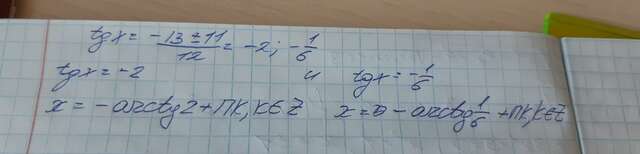 tgx = (-13 ± 11)/12 = -2; -1/6
tgx = -2 и tgx = -1/6
x = -arctg2 + πk, k∈Z x = -arctg 1/6 + πk, k∈Z